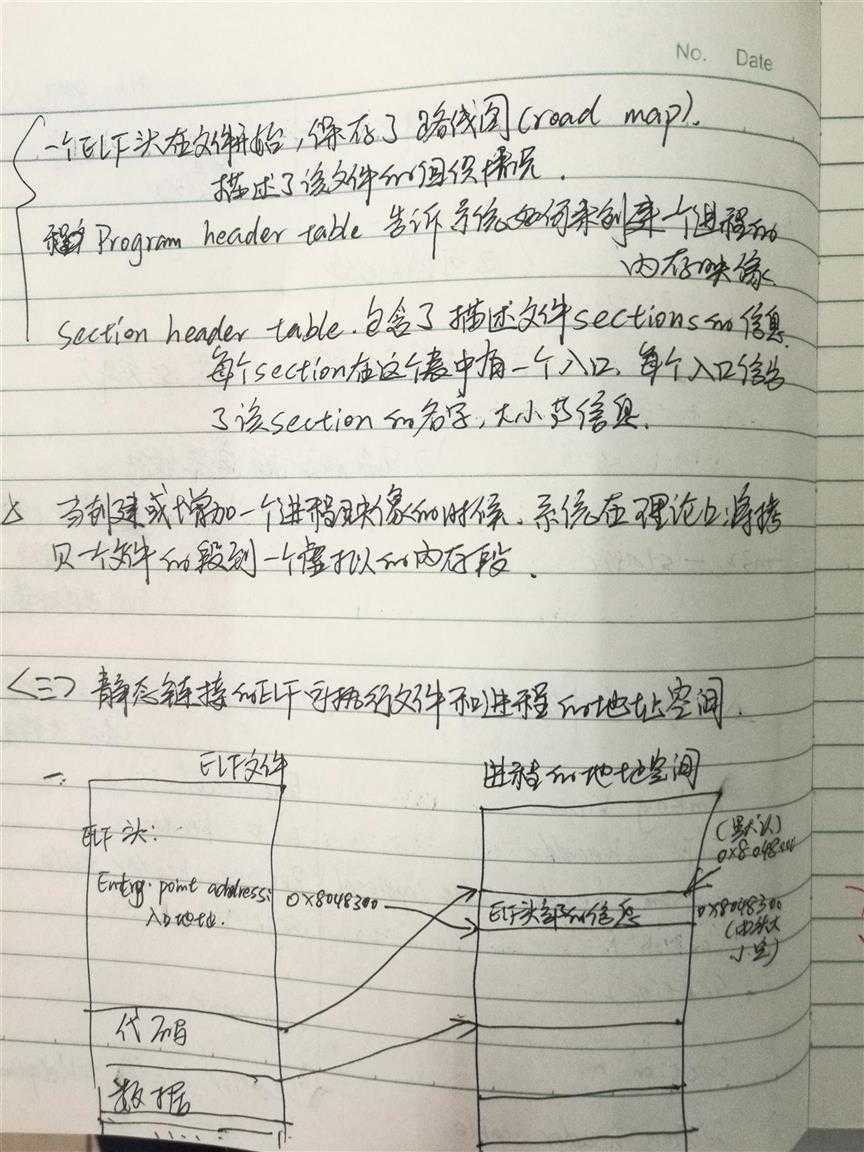 No. Date
一个ELF头在文件开始,保存了路线图(road map),
描述了该文件的组织情况.
Program header table 告诉系统如何来创建一个进程的
内存映像
section header table.包含了描述文件sections的信息.
每个section在这个表中有一个入口,每个入口给出
了该section的名字,大小等信息.
当创建或增加一个进程映像的时候,系统在理论上将拷
贝一个文件的段到一个虚拟的内存段.
<三> 静态链接的ELF可执行文件和进程的地址空间.
一. ELF文件 进程的地址空间
(默认)
ELF头: 0x8048000
Entry point address:
0x8048300 ELF头部的信息 0x8048300
入口地址. (由头大
小定)
代码
数据
......